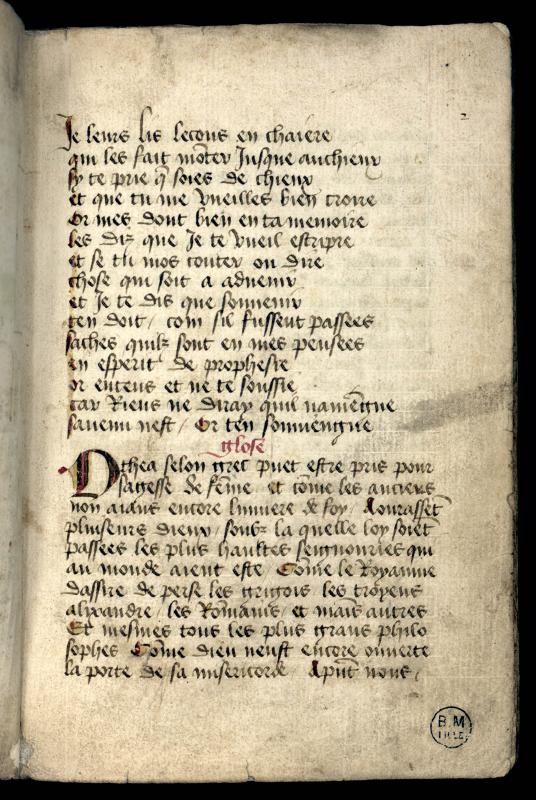 Je leurs lis lecons en chaiere
qui les fait mōter Jusque auchieux
sy te prie q̄ soies de chieux
et que tu me vueilles bien croire
Or mes dont bien en ta memoire
les diz que Je te vueil escripre
et se tu mos conter ou dire
chose qui soit a aduenir
et Je te dis que souuenir
ten doit / com sil fussent passees
saches quilz sont en mes pensees
en esperit de prophesie
or entens et ne te soussie
car Riens ne diray quil nauiengne
sauenu nest / Or ten souuiengne
glose
Othea selon grec puet estre pris pour
sagesse de fēme et cōme les anciens
non aians encore lumiere de foy / Aourassēt
pluiseurs dieux / soubz la quelle loy soiēt
passees les plus haultes seignouries qui
au monde aient este Cōme le Royaume
dassire de perse les grigois les troyens
alixandre / les Romains / et mains autres
Et mesmes tous les plus grans philo
sophes Cōme dieu neust encore ouuerte
la porte de sa misericorde Apn̄t nous /
B.M
LILLE